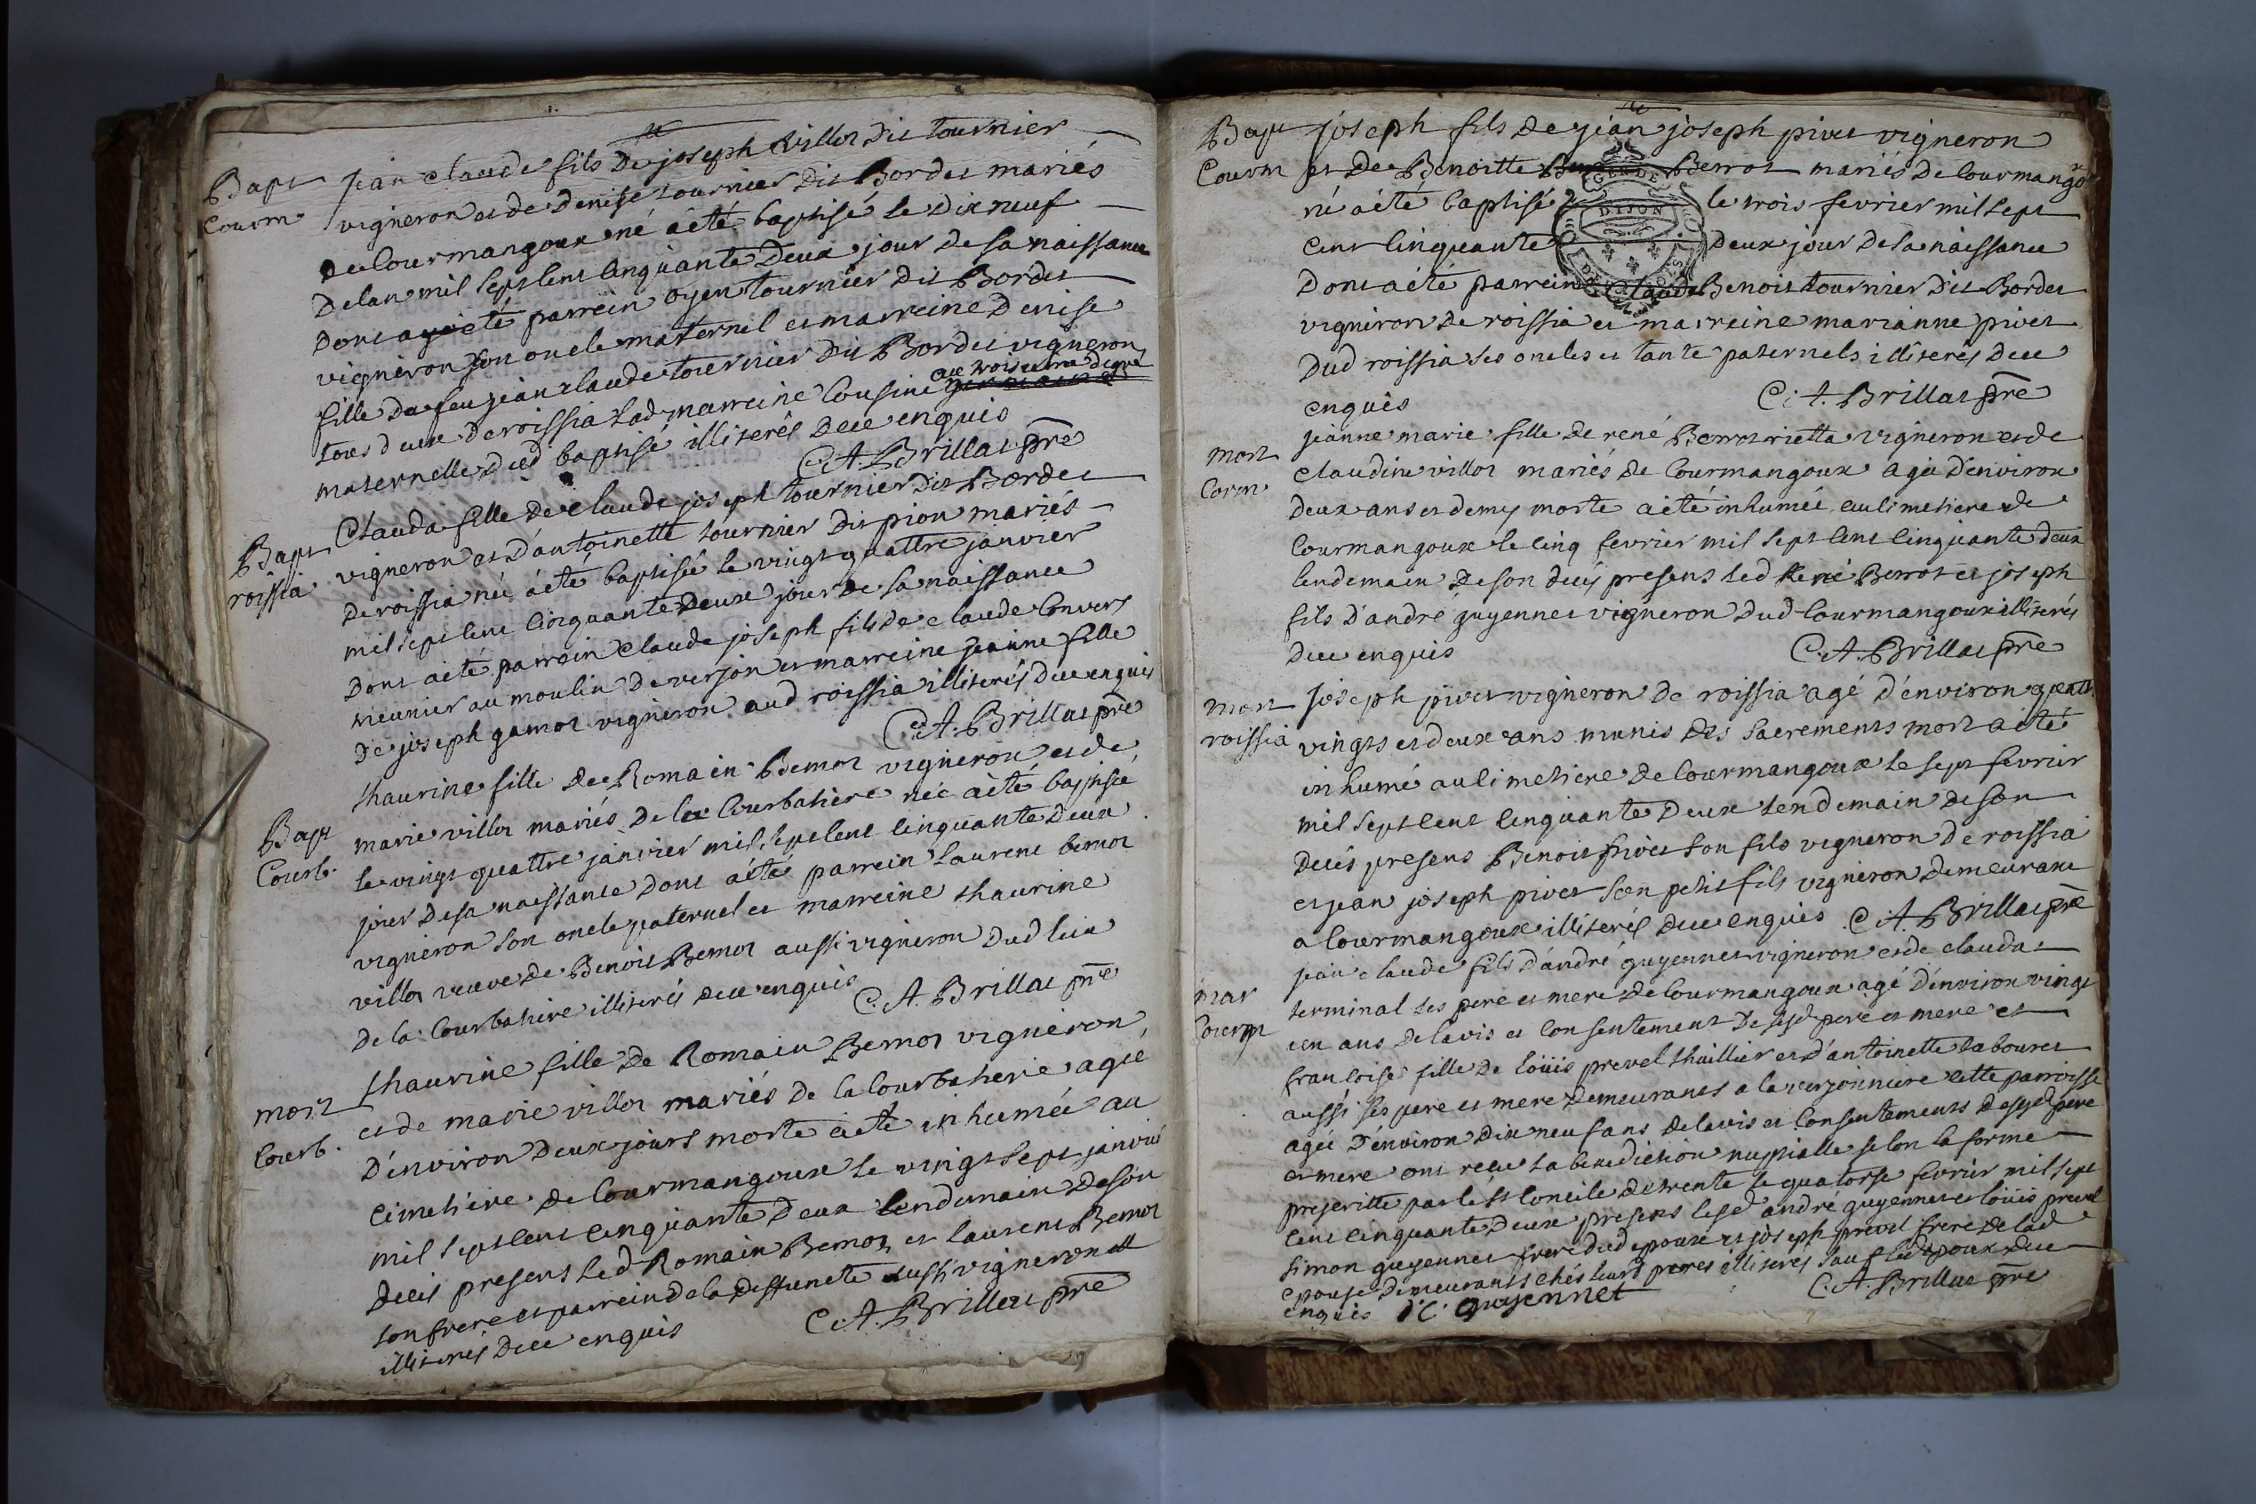 Bapt
Courm.
jean claude fils de joseph villot dit tournier
vigneron et de denise tournier dit Bordet mariés
de Courmangoux né a été baptisé le dix neuf
de lan mil sept cent cinquante deux jour de sa naissance
dont a été parrein oyen tournier dit Bordet
vigneron son oncle maternel et marreine denise
fille de feu jean claude tournier dit Bordet vigneron
tous deux de roissia lad marreine cousine au troisieme degré
maternelle dud baptisé illiterés de ce enquis
C. A. Brillat pre
Bapt
roissia
Clauda fille de claude joseph tournier dit Bordet
vigneron et d'antoinette tournier dit pion mariés
de roissia née a été baptisée le vingt quattre janvier
mil sept cent cinquante deux jour de sa naissance
dont a été parrein claude joseph fils de claude Convert
meunier au moulin de verjon et marreine jeanne fille
de joseph gamot vigneron aud roissia illiterés de ce enquis
C. A. Brillat pre
Bapt
Courb.
thaurine fille de Romain Bemot vigneron et de
marie villot mariés de la Courbatiere née a été baptisée
le vingt quattre janvier mil sept cent cinquante deux
jour de sa naissance dont a été parrein laurent bemot
vigneron son oncle paternel et marreine thaurine
villot veuve de Benoit Bemot aussi vigneron dud lieu
de la Courbatiere illiterés de ce enquis
C. A. Brillat pre
mort
Courb.
thaurine fille de Romain Bemot vigneron,
et de marie villot mariés de la Courbatiere agée
d'environ deux jours morte a été inhumée au
cimetiere de Courmangoux le vingt sept janvier
mil sept cent cinquante deux lendemain de son
decés present led Romain Bemot et laurent Bemot
son frere et parrein de la deffuncte aussi vigneron
illiterés de ce enquis
C. A. Brillat pre
Bapt
Courm
joseph fils de jean joseph pivet vigneron
et de Benoitte Berrot mariés de Courmangoux
né a été baptisé le trois fevrier mil sept
cent cinquante deux jour de sa naissance
dont a été parrein claude Benoit tournier dit Bordet
vigneron de roissia et marreine marianne pivet
dud roissia ses oncles et tante paternels illiterés de ce
enquis
C. A. Brillat pre
mort
Corm.
jeanne marie fille de rené Berrot vigneron et de
claudine villot mariés de Courmangoux agée d'environ
deux ans et demy morte a été inhumée au cimetiere de
Courmangoux le cinq fevrier mil sept cent cinquante deux
lendemain de son decés present led René Berrot et joseph
fils d'andré guyennet vigneron dud Courmangoux illiterés
de ce enquis
C. A. Brillat pre
mort
roissia
joseph pivet vigneron de roissia agé d'environ quattre
vingts et deux ans munis des sacrements mort a été
inhumé au cimetiere de Courmangoux le sept fevrier
mil sept cent cinquante deux lendemain de son
decés present Benoit pivet son fils vigneron de roissia
et jean joseph pivet son petit fils vigneron demeurant
a Courmangoux illiterés de ce enquis C. A. Brillat pre
mar
Courm
jean claude fils d'andré guyennet vigneron et de clauda
terminal ses pere et mere de Courmangoux agé d'environ vingt
un ans de lavis et consentement de sesd pere et mere et
francoise fille de loüis prevel thuillier et d'antoinette labouret
aussi ses pere et mere demeurants a la verjonniere cette parroisse
agée d'environ dix neuf ans de lavis et consentements de sesd pere
et mere ont receu la benediction nuptialle selon la forme
prescritte par le st concile de trente le quatorse fevrier mil sept
cent cinquante deux presens lesd andré guyennet et loüis prevel
simon guyennet frere dud epoux et joseph prevel frere de lad
epouse demeurants chés leurs peres illiterés sauf led epoux de ce
enquis
J C guyennet
C. A. Brillat pre
DIJON